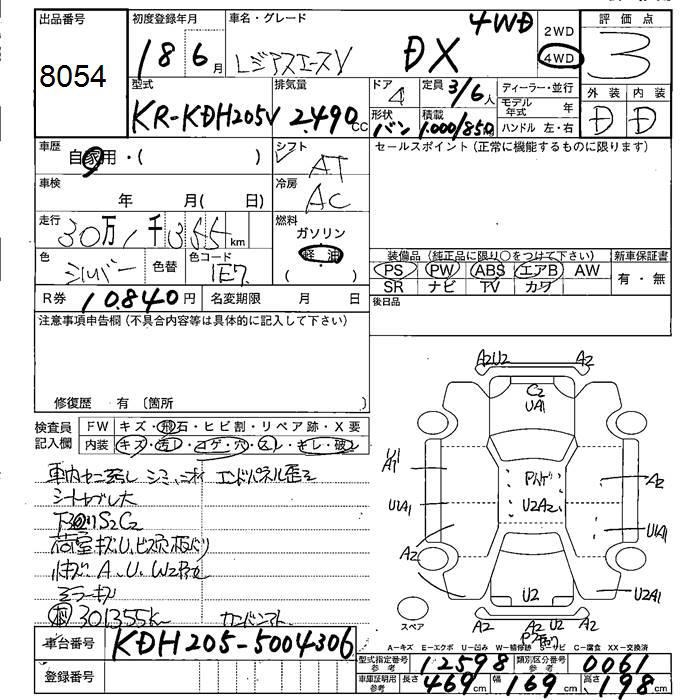 出品番号
8054
初度登録年月
18 6月
車名・グレード
レジアスエースV DX 4WD
2WD
4WD
評価点
3
外装 内装
D D
型式
KR-KDH205V
排気量
2.490cc
ドア
4
形状
バン
定員 3/6人
積載
1.000/850kg
ディーラー・並行
モデル年式 年
ハンドル 左・右
車歴
自家用・( )
車検
年 月( 日)
走行
30万1千355km
色
シルバー
色替
色コード
1E7
R券 10.840円
名変期限 月 日
シフト
AT
冷房
AC
燃料
ガソリン
軽油
( )
セールスポイント(正常に機能するものに限ります)
装備品(純正品に限り○をつけて下さい)
PS PW ABS エアB AW
SR ナビ TV カワ
新車保証書
有・無
後日品
注意事項申告欄(不具合内容等は具体的に記入して下さい)
修復歴 有〔箇所
検査員記入欄
FW キズ・飛石・ヒビ割・リペア跡・X要
内装 キズ・汚レ・コゲ・穴・スレ・キレ・破レ
シミ、ニオイ エンドパネル歪ミ
シートヤブレ大
S2C2
A、U、W2
ミラーキズ
301355km
車台番号 KDH205-5004306
登録番号
A2U2 A2
C2
UA1
U1
A1
U1A1
A2
U2A2
A2
U1A1
A2
U2
U2A1
スペア
A2 A2 U2 A2
A-キズ E-エクボ U-凹み W-補修跡 S-サビ C-腐食 XX-交換済
型式指定番号 参考 12598
類別区分番号 参考 0061
車庫証明用 参考 長さ 469cm 幅 169cm 高さ 198cm